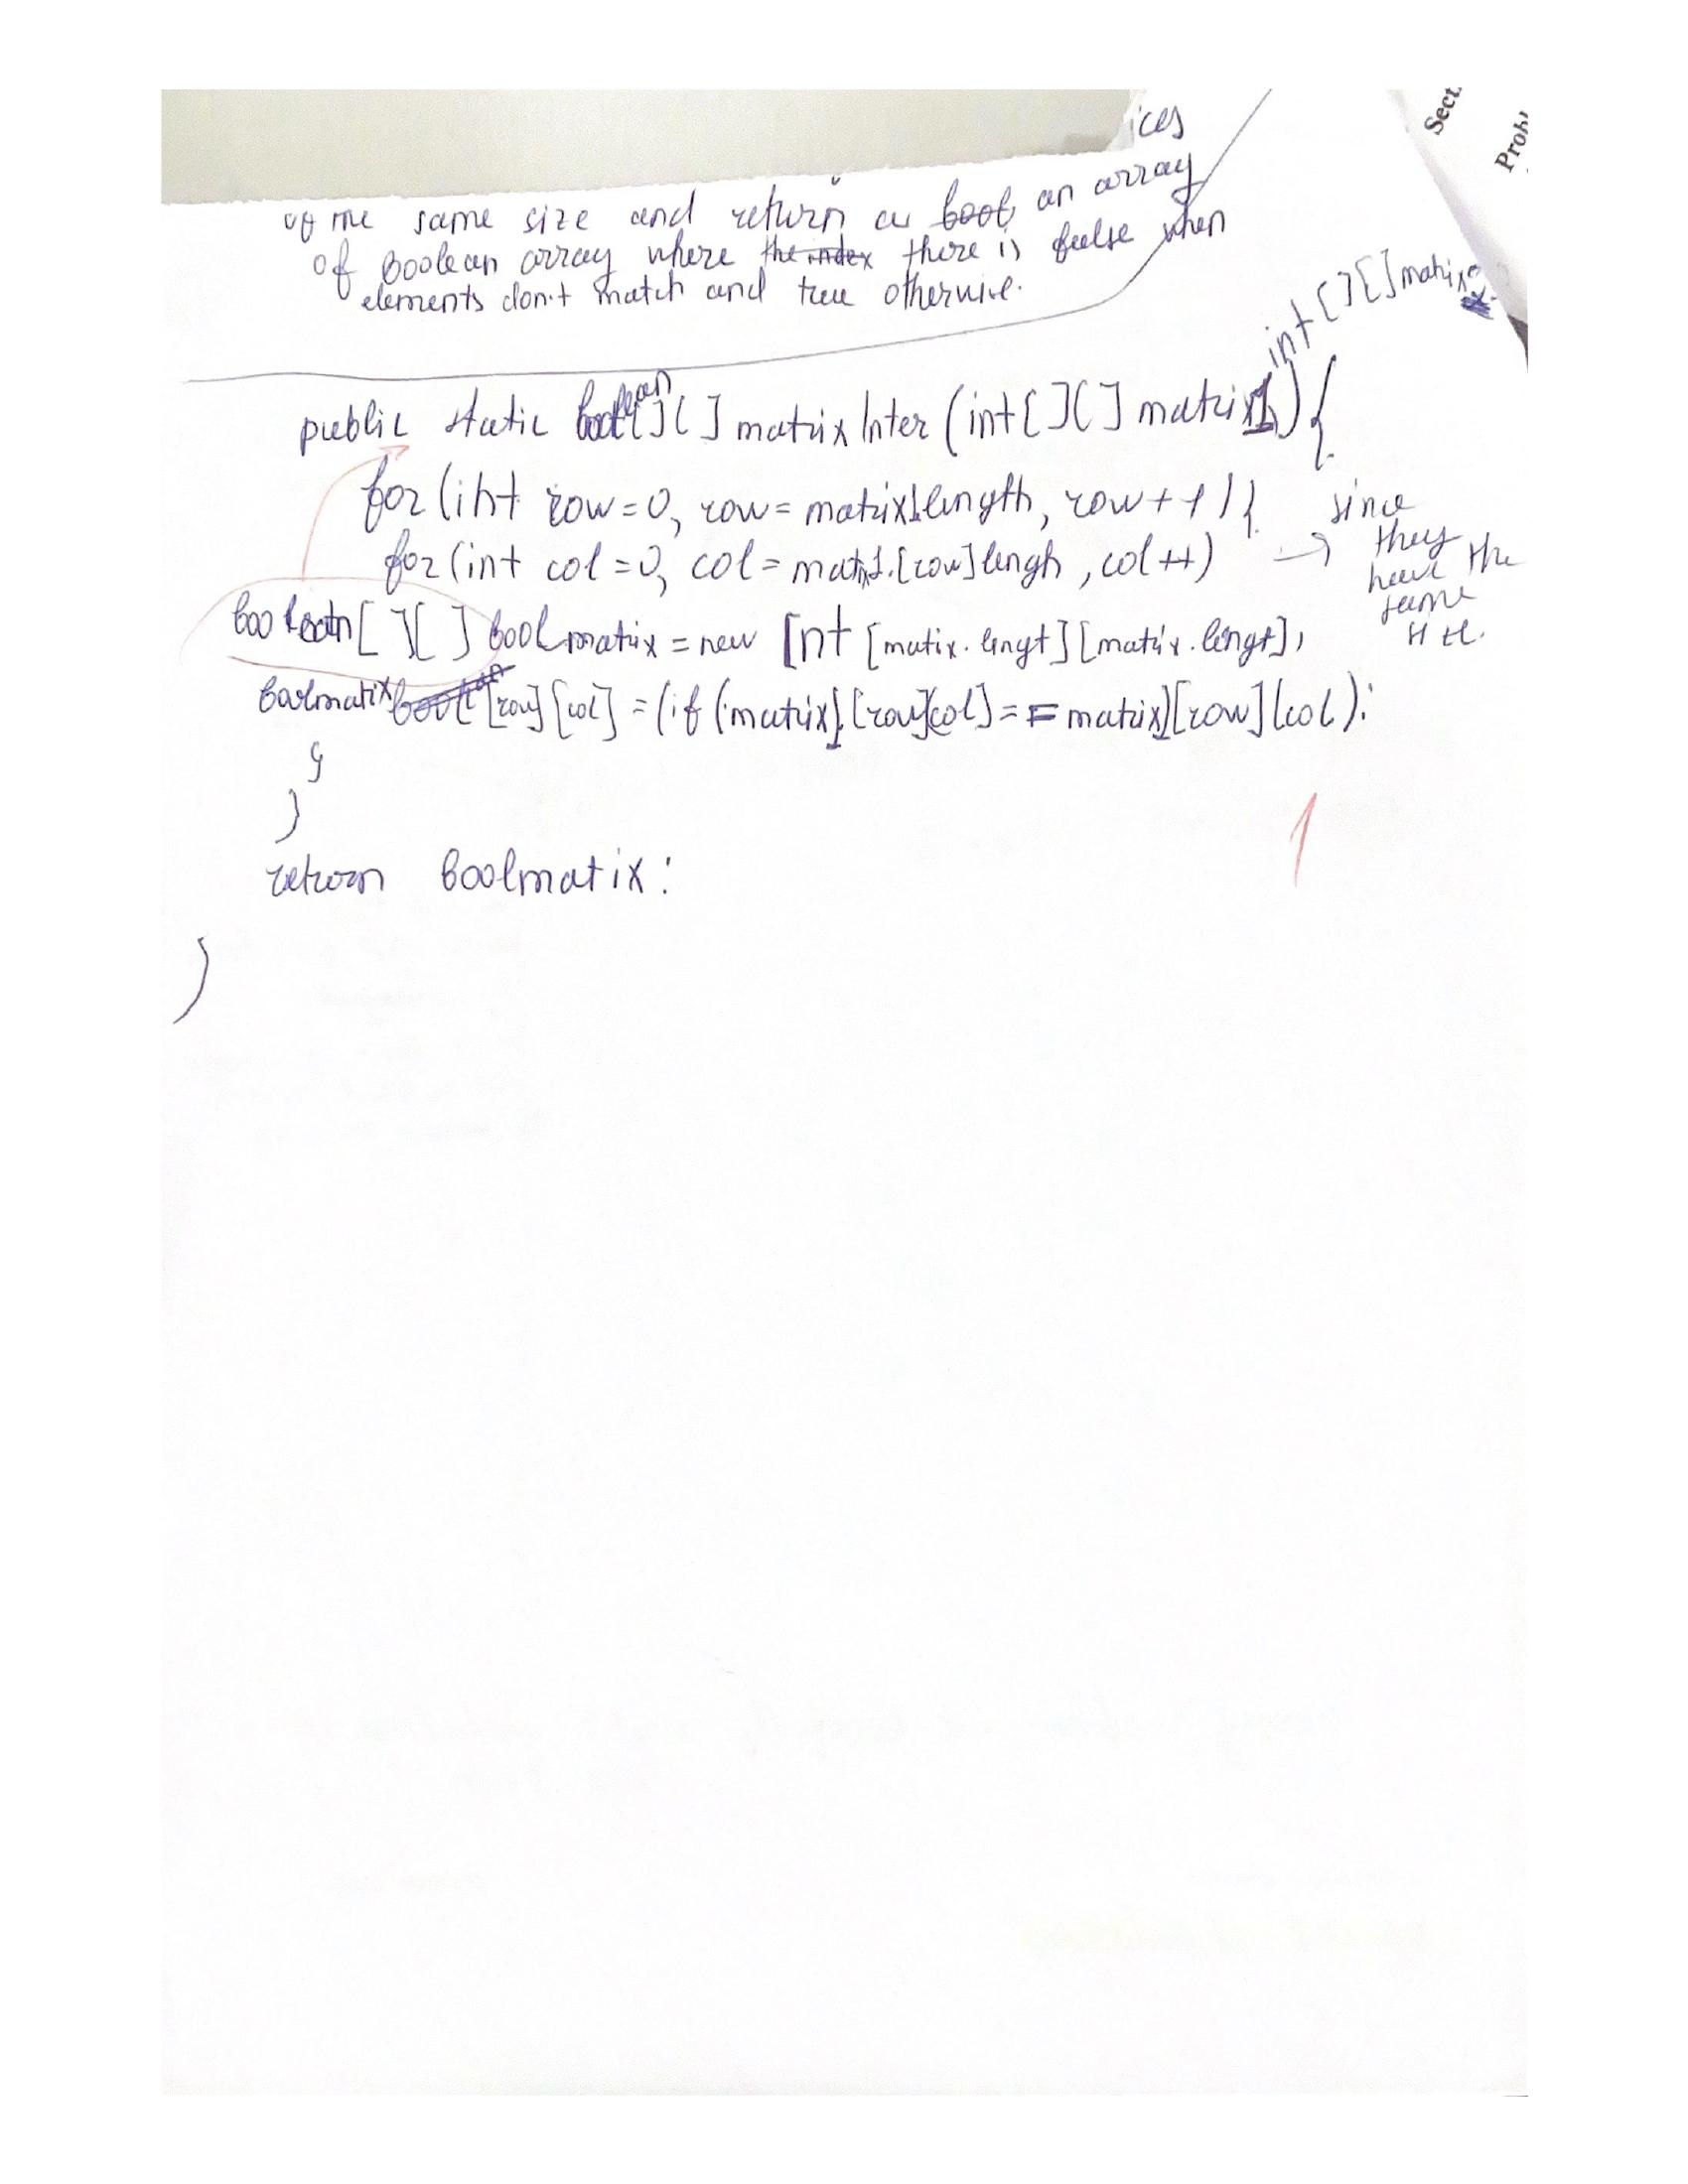 ices
of the same size and return a bool an array
of Boolean array where the index there is false when
elements don't match and true otherwise.
Sect.
Probl
int[][] matrix
public static boolean[][] matrixInter (int[][] matrix1) {
for (int row=0, row= matrix1.length, row++1) {
for (int col=0, col= mat1.[row]lengh, col++) → since they have the same
boolean[][] boolmatrix = new Int [matix.lingt][matrix.lengt],
Boolmatix [row][col] = (if (matrix1.[row][col] == matrix1[row][col):
}
}
return Boolmatix:
}
1